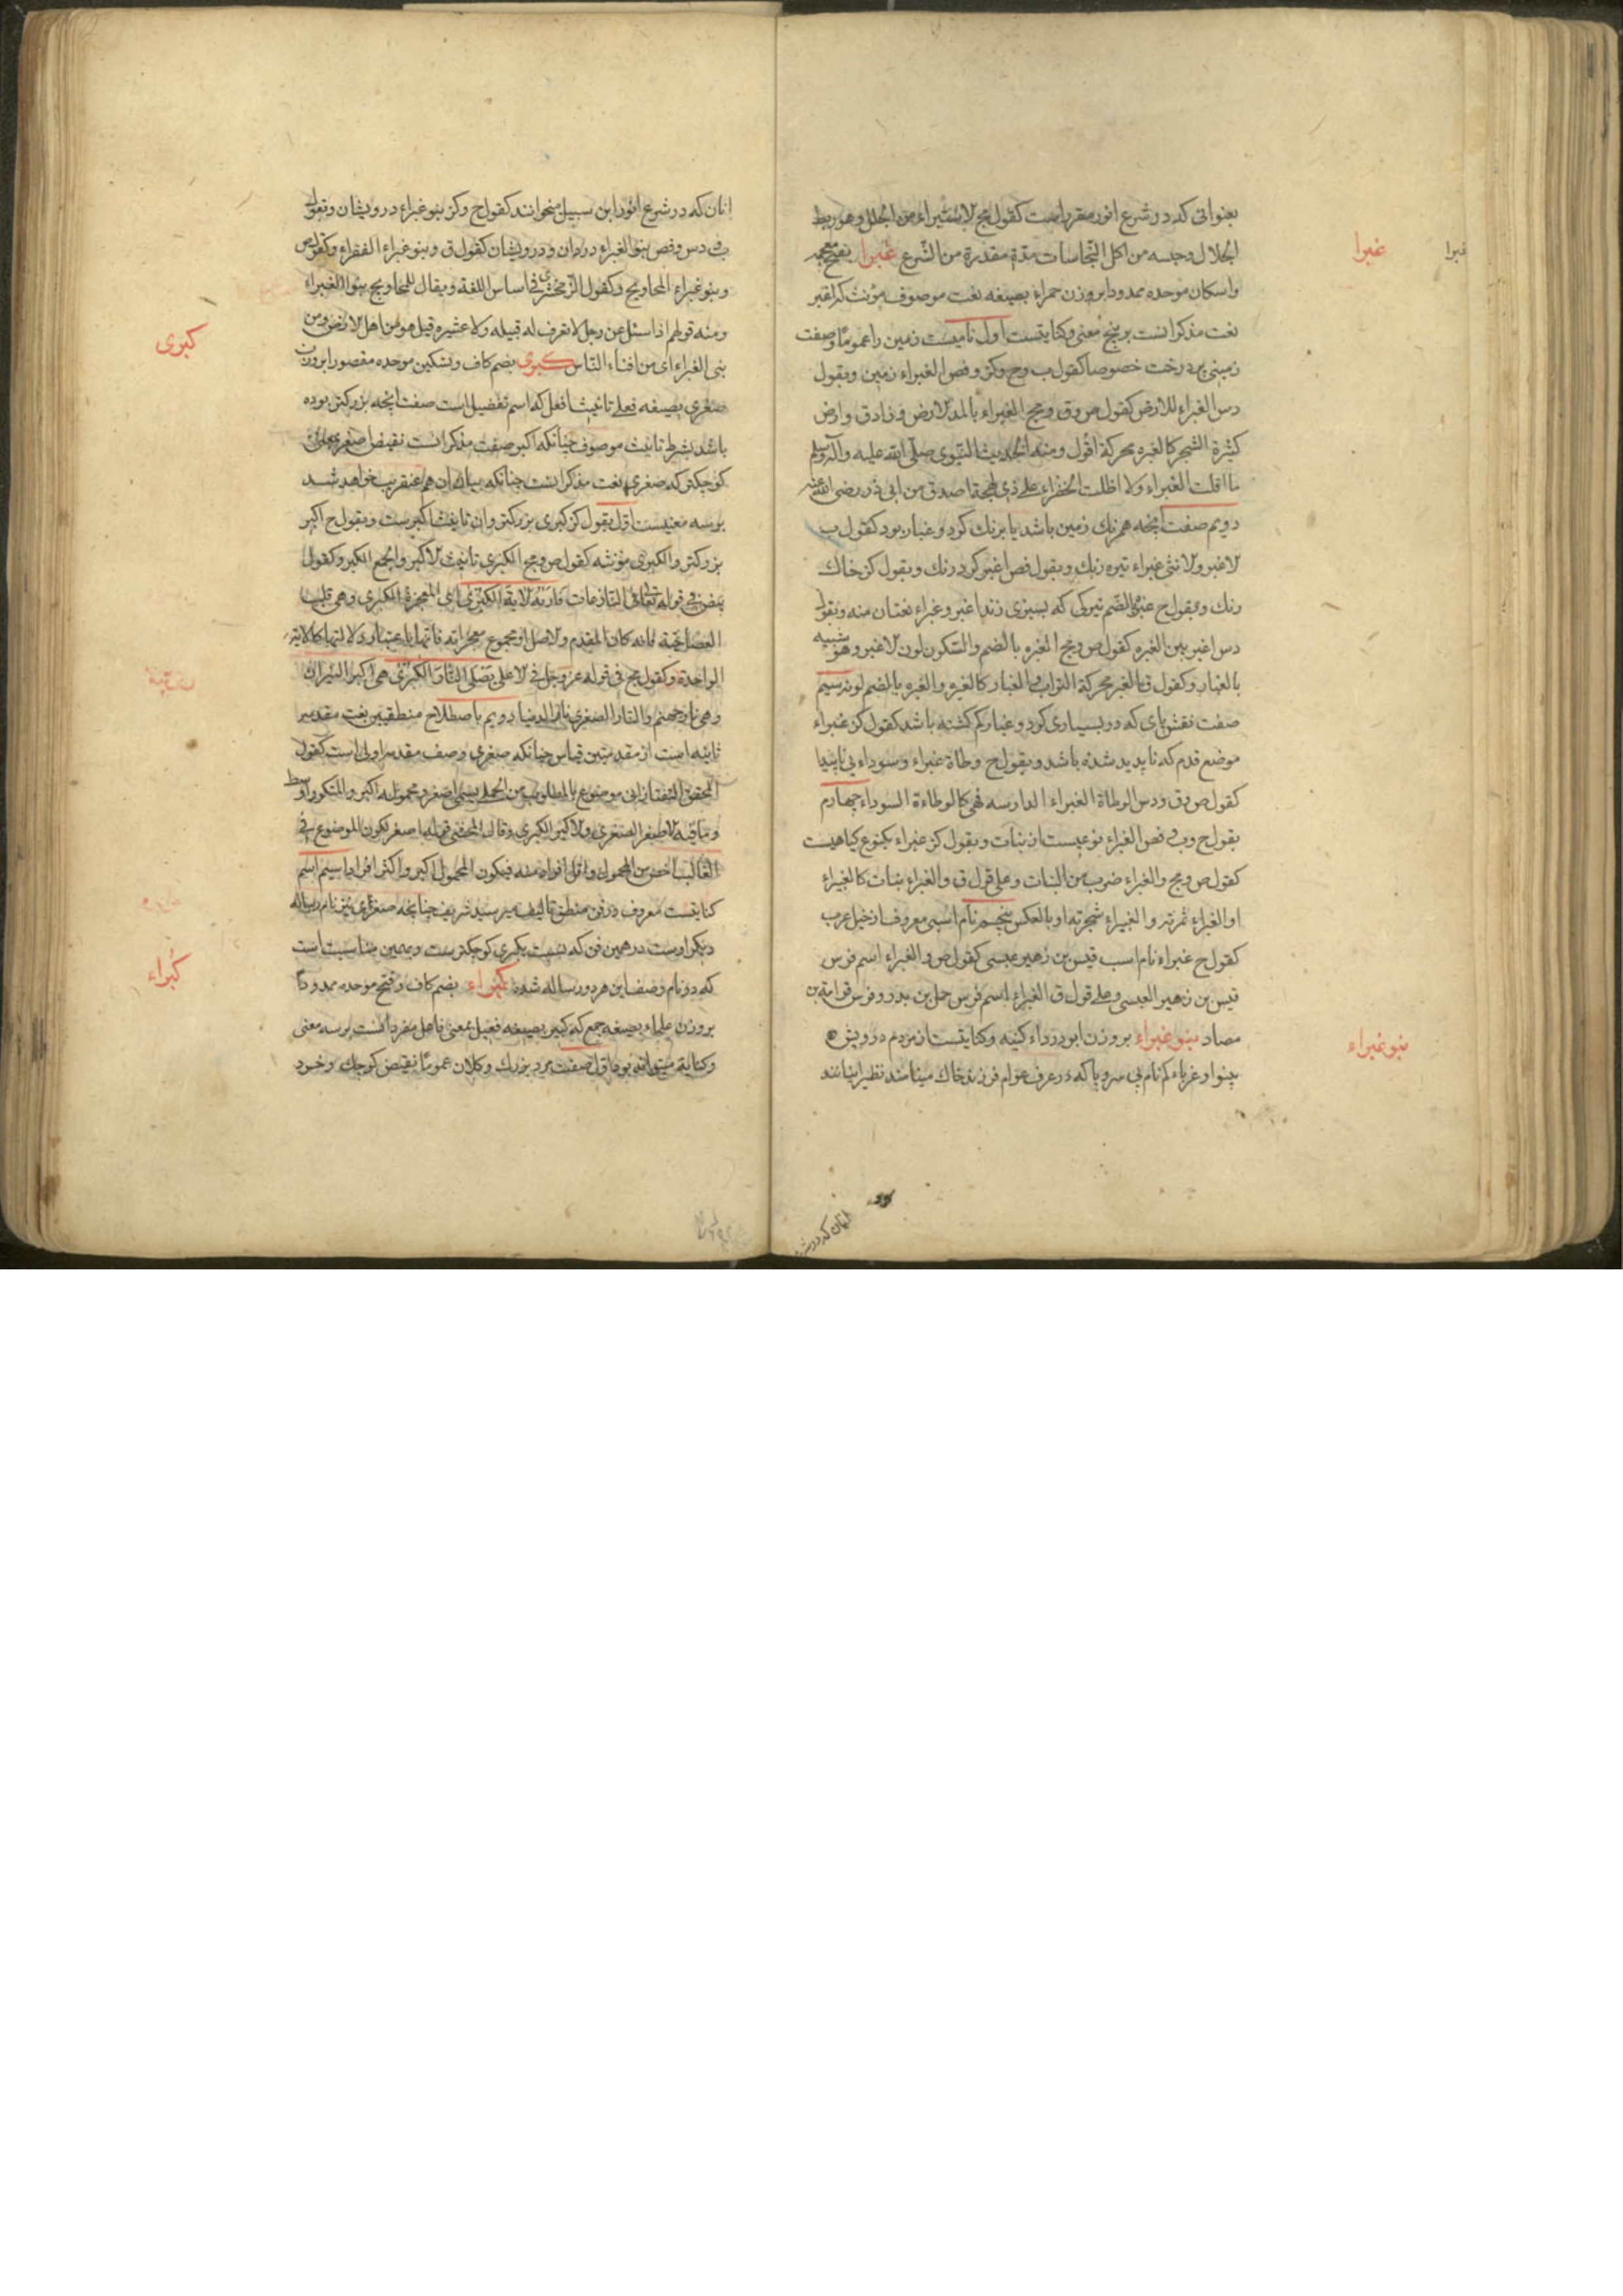 بعنوانی که در شرع انور مقرر است کقول مج الاستبراء من الجلل وهو ربط
الجلال وحبسه من اکل النجاسات مدة مقدرة من الشرع غبرا بفتح معجمه
واسکان موحده ممدودا بروزن حمراء بصیغه نعت موصوف مؤنث که اغبر
نعت مذکر انست بر پنج معنی وکنایتست اول نامیست زمین را عموما وصفت
زمینی پر درخت خصوصا کقول ب وح وکز وفص الغبراء زمین وبقول
دس الغبراء للارض کقول ص وق ومج الغبراء بالمد الارض وزاد ق وارض
کثیرة الشجر کالغبره محرکة اقول ومنه الحدیث النبوی صلی الله علیه وآله وسلم
ما اقلت الغبراء ولا اظلت الخضراء علی ذی لهجة اصدق من ابی ذر رضی الله عنه
دویم صفت آنچه هم رنك زمین باشد یا برنك کرد وغبار بود کقول ب
الاغبر والانثی غبراء تیره رنك وبقول فص اغبر کرد رنك وبقول کز خاك
رنك وبقول ح غبره بالضم تیرکی که بسبزی زند اغبر وغبراء نعتان منه وبقول
دس اغبر بین الغبره کقول ص ومج الغبره بالضم والسکون لون الاغبر وهو شبیه
بالغبار وکقول ق الغبر محرکة التراب والغبار کالغبره والغبره بالضم لونه سیم
صفت نقش پای که در بسیاری کرد وغبار کم کشته باشد کقول کز غبراء
موضع قدم که ناپدید شده باشد وبقول ح وطاة غبراء وسوداء پی ناپیدا
کقول ص وق ودس الوطاة الغبراء الدارسه فهی کالوطاءة السوداء چهارم
بقول ح وب وفص الغبراء نوعیست از نبات وبقول کز غبراء یکنوع کیاهیست
کقول ص ومج والغبراء ضرب من النبات وعلی قول ق والغبراء نبات کالغبیراء
او الغبراء ثمرته والغبیراء شجرته او بالعکس پنجم نام اسبی معروف از خیل عرب
کقول ح غبراء نام اسب قیس بن زهیر عبسی کقول ص والغبراء اسم فرس
قیس بن زهیر العبسی وعلی قول ق الغبراء اسم فرس حمل بن بدر وفرس قدامة بن
مصاد بنو غبراء بروزن ابو درداء کنیه وکنایتست از مردم درویش
بینوا وغرباء کم نام بی سروپا که در عرف عوام فرزند خاك مینامند نظیر اینانند
غبرا
غبرا
بنو غبراء
اینان که در شر
اینان که در شرع انور ابن سبیل میخوانند کقول ح وکز بنو غبراء درویشان وبقول
ب ودس وفص بنو الغبراء دزدان ودرویشان کقول ق وبنو غبراء الفقراء وکقول ص
وبنو غبراء المحاویج وکقول الزمخشری فی اساس اللغة ویقال للمحاویج بنوا الغبراء
ومنه قولهم اذا سئل عن رجل لا تعرف له قبیله ولا عشیره قیل هو من اهل الارض ومن
بنی الغبراء ای من افناء الناس کبری بضم کاف وتسکین موحده مقصورا بروزن
صغری بصیغه فعلی تانیث افعل که اسم تفضیل است صفت آنچه بزرکتر بوده
باشد بشرط تانیث موصوف چنانکه اکبر صفت مذکر انست نقیض صغری بمعنی
کوچکتر که صغری نعت مذکر انست چنانکه بیان ان هم عنقریب خواهد شد
بر سه معنیست اول بقول کز کبری بزرکتر وان تانیث اکبرست وبقول ح اکبر
بزرکتر والکبری مؤنثه کقول ص ومج الکبری تانیث الاکبر والجمع الکبر وکقول
بیض فی قوله تعالی فی النازعات فاریه الایة الکبری ای المعجزة الکبری وهی قلب
العصا حیة فانه کان المقدم والاصل او مجموع معجزاته فانها باعتبار دلالتها کالایة
الواحدة وکقول مج فی قوله عز وجل فی الاعلی یصلی النار الکبری هی اکبر النیران
وهی نار جهنم والنار الصغری نار الدنیا دویم باصطلاح منطقیین نعت مقدمه
ثانیه است از مقدمتین قیاس چنانکه صغری وصف مقدمه اولی است کقول
المحقق التفتازانی موضوع المطلوب من الحملی یسمی اصغر ومحموله اکبر والمتکرر اوسط
وما فیه الاصغر الصغری والاکبر الکبری وقال المحشی قوله اصغر لکون الموضوع فی
الغالب اخص من المحمول واقل افرادا منه فیکون المحمول اکبر واکثر افرادا سیم اسم
کتابیست معروف در فن منطق تالیف میر سید شریف چنانچه صغرای نیز نام رساله
دیکر اوست در همین فن که نسبت بکبری کوچکترست وبهمین مناسبت است
که دو نام وصف این هر دو رساله شده کبراء بضم کاف وفتح موحده ممدودا
بروزن علماء بصیغه جمع که کبیر بصیغه فعیل بمعنی فاعل مفرد انست بر سه معنی
وکنایة میتواند بود اول صفت مرد بزرك وکلان عموما نقیض کوچك وخرد
کبری
کبراء